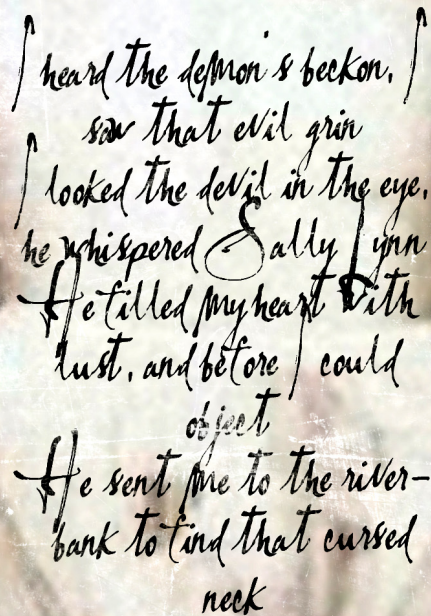 I heard the demon's beckon, I
saw that evil grin
I looked the devil in the eye,
he whispered Sally Lynn
He filled my heart with
lust, and before I could
object
He sent me to the river-
bank to find that cursed
neck